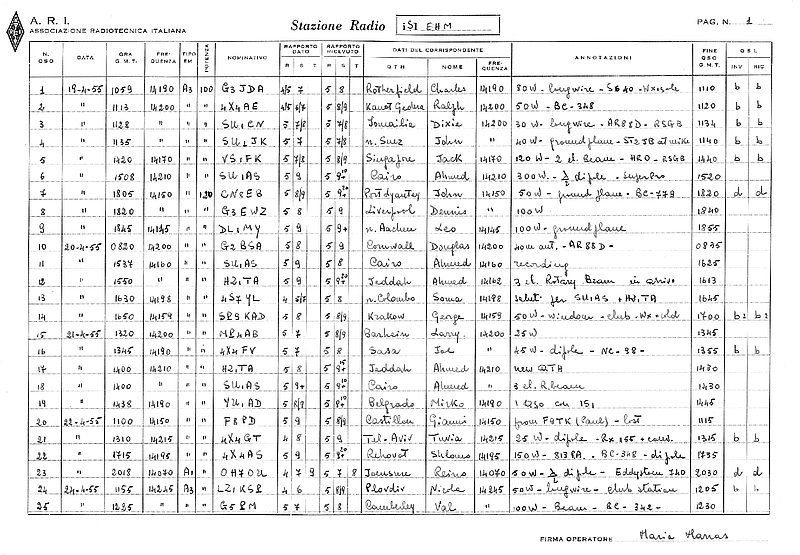 A. R. I.
ASSOCIAZIONE RADIOTECNICA ITALIANA
Stazione Radio iS1 EHM
PAG. N. 1
N. QSO DATA ORA G.M.T. FREQUENZA TIPO EM POTENZA NOMINATIVO RAPPORTO DATO R S T RAPPORTO RICEVUTO R S T DATI DEL CORRISPONDENTE QTH NOME FREQUENZA ANNOTAZIONI FINE QSO G.M.T. QSL INV. RIC.
1 19-4-55 1059 14190 A3 100 G3JDA 4/5 7 5 8 Rotherfield Charles 14190 80W - longwire - S640 - 1110 b b
2 " 1113 14200 " " 4X4AE 4/5 6/7 5 8/9 Ralph 14200 50W - BC-348 1120 b b
3 " 1128 " " " SU1CN 5 7/8 5 7/8 Ismailia Dixie 14200 30W - longwire - AR88D - RSGB 1134 b b
4 " 1135 " " " 5 7 5 7/8 n. Suez John " 40W - groundplane - 1140 b b
5 " 1420 14170 " " VS1FK 5 7/8 5 8/9 Singapore Jack 14170 120W - 2 el. Beam - HRO - RSGB 1440 b b
6 " 1508 14210 " " SU1AS 5 9 5 9+ Cairo Ahmed 14210 300W - λ/2 dipole - SuperPro 1520
7 " 1805 14150 " 120 CN8EB 5 8/9 5 9+20 Port Lyautey John 14150 50W - ground plane - BC-779 1820 d d
8 " 1820 " " " G3EWZ 5 8 5 9 Liverpool Dennis " 100W 1840
9 " 1845 14145 " " DL1MY 5 9 5 9+ n. Aachen Leo 14145 100W - groundplane 1855
10 20-4-55 0820 14200 " " G2BSA 5 8 5 9 Cornwall Douglas 14200 40W - AR88D - 0835
11 " 1537 14160 " " SU1AS 5 9 5 8 Cairo Ahmed 14160 recording 1625
12 " 1550 " " " HZ1TA 5 9 5 9+20 Jeddah Ahmed 14162 3 el. Rotary Beam in arrivo 1613
13 " 1630 14198 " " 4S7YL 4 5/7 5 8 n. Colombo Soma 14198 saluti per SU1AS + HZ1TA 1645
14 " 1650 14159 " " 5 8 5 8/9 Krakow George 14159 50W - window - club - 1700
15 21-4-55 1320 14200 " " MP4AB 5 7 5 8/9 Larry 14200 25W 1345
16 " 1345 14190 " " 4X4FV 5 7 5 8 Sasa Joe " 45W - dipole - NC-98 - 1355 b b
17 " 1400 14210 " " HZ1TA 5 8 5 9+15 Jeddah Ahmed 14210 new QTH 1430
18 " 1400 " " " SU1AS 5 9+ 5 9+10 Cairo Ahmed " 3 el. R. beam 1430
19 " 1438 14190 " " YU1AD 5 8/9 5 9+10 Belgrado Mirko 14190 1445
20 22-4-55 1100 14150 " " 5 9 5 8/9 Castillon 14150 1115
21 " 1310 14215 " " 4X4GT 4 8 5 9 Tel-Aviv Tuvia 14215 25W - dipole - 1315 b b
22 " 1715 14195 " " 4X4AS 5 9 5 9 Rehovot Shlomo 14195 150W - 813PA. BC-348 - dipole 1735
23 " 2018 14070 A1 " 4 7 9 5 7 8 Joensuu Reino 14070 50W - λ/2 dipole - Eddystone 740 2030 d d
24 24-4-55 1155 14245 A3 " 4 6 5 8/9 Plovdiv Nicola 14245 50W - longwire - club station 1205 b b
25 " 1235 " " " 5 7 5 8 Camberley Val " 100W - Beam - BC-342 - 1230
FIRMA OPERATORE